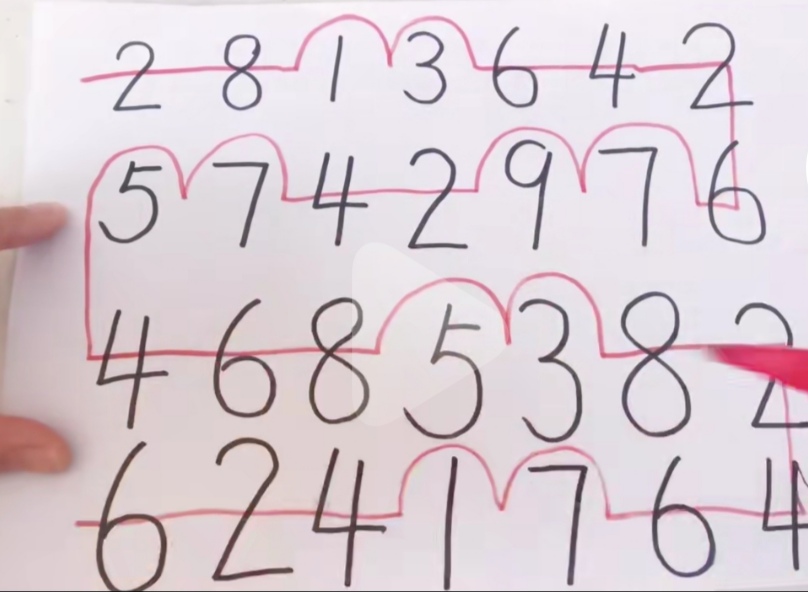 2 8 1 3 6 4 2
5 7 4 2 9 7 6
4 6 8 5 3 8 2
6 2 4 1 7 6 4